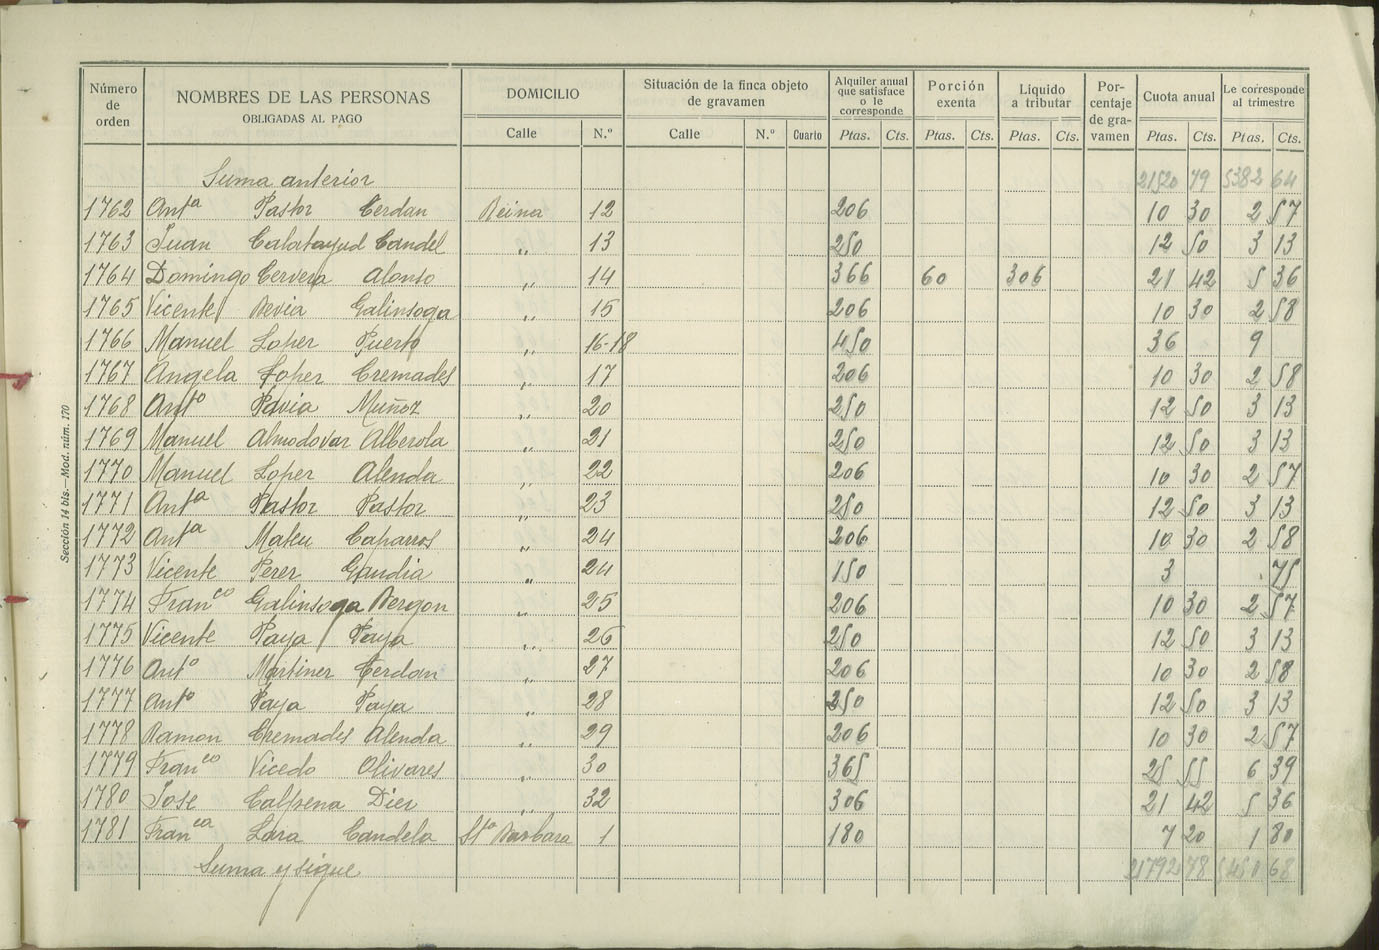 Número de orden | NOMBRES DE LAS PERSONAS OBLIGADAS AL PAGO | DOMICILIO | Situación de la finca objeto de gravamen | Alquiler anual que satisface o le corresponde | Porción exenta | Liquido a tributar | Por-centaje de gra-vamen | Cuota anual | Le corresponde al trimestre
Calle | N.º | Calle | N.º | Cuarto | Ptas. | Cts. | Ptas. | Cts. | Ptas. | Cts. | Ptas. | Cts. | Ptas. | Cts.
Suma anterior 21520 79 5382 64
1762 Antª Pastor Cerdan Reina 12 206 10 30 2 57
1763 Juan Calatayud Candel " 13 250 12 50 3 13
1764 Domingo Cervera Alonso " 14 366 60 306 21 42 5 36
1765 Vicente Devia Galinsoga " 15 206 10 30 2 58
1766 Manuel Lopez Puerto " 16-18 450 36 9
1767 Angela Lopez Cremades " 17 206 10 30 2 58
1768 Antº Pavia Muñoz " 20 250 12 50 3 13
1769 Manuel Almodovar Alberola " 21 250 12 50 3 13
1770 Manuel Lopez Alenda " 22 206 10 30 2 57
1771 Antª Pastor Pastor " 23 250 12 50 3 13
1772 Antª Mateu Caparros " 24 206 10 30 2 58
1773 Vicente Perez Gandia " 24 150 3 75
1774 Franco Galinsoga Bergon " 25 206 10 30 2 57
1775 Vicente Paya Paya " 26 250 12 50 3 13
1776 Antº Martinez Cerdan " 27 206 10 30 2 58
1777 Antº Paya Paya " 28 250 12 50 3 13
1778 Ramon Cremades Alenda " 29 206 10 30 2 57
1779 Franco Vicedo Olivares " 30 365 25 55 6 39
1780 Jose Calpena Diez " 32 306 21 42 5 36
1781 Franca Lara Candela Stª Barbara 1 180 7 20 1 80
Suma y sigue 21792 78 5450 68
Sección 14 bis.—Mod. núm. 170